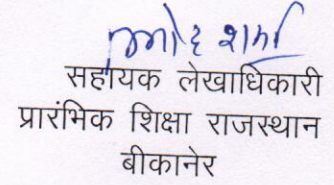 शर्मा
सहायक लेखाधिकारी
प्रारंभिक शिक्षा राजस्थान
बीकानेर